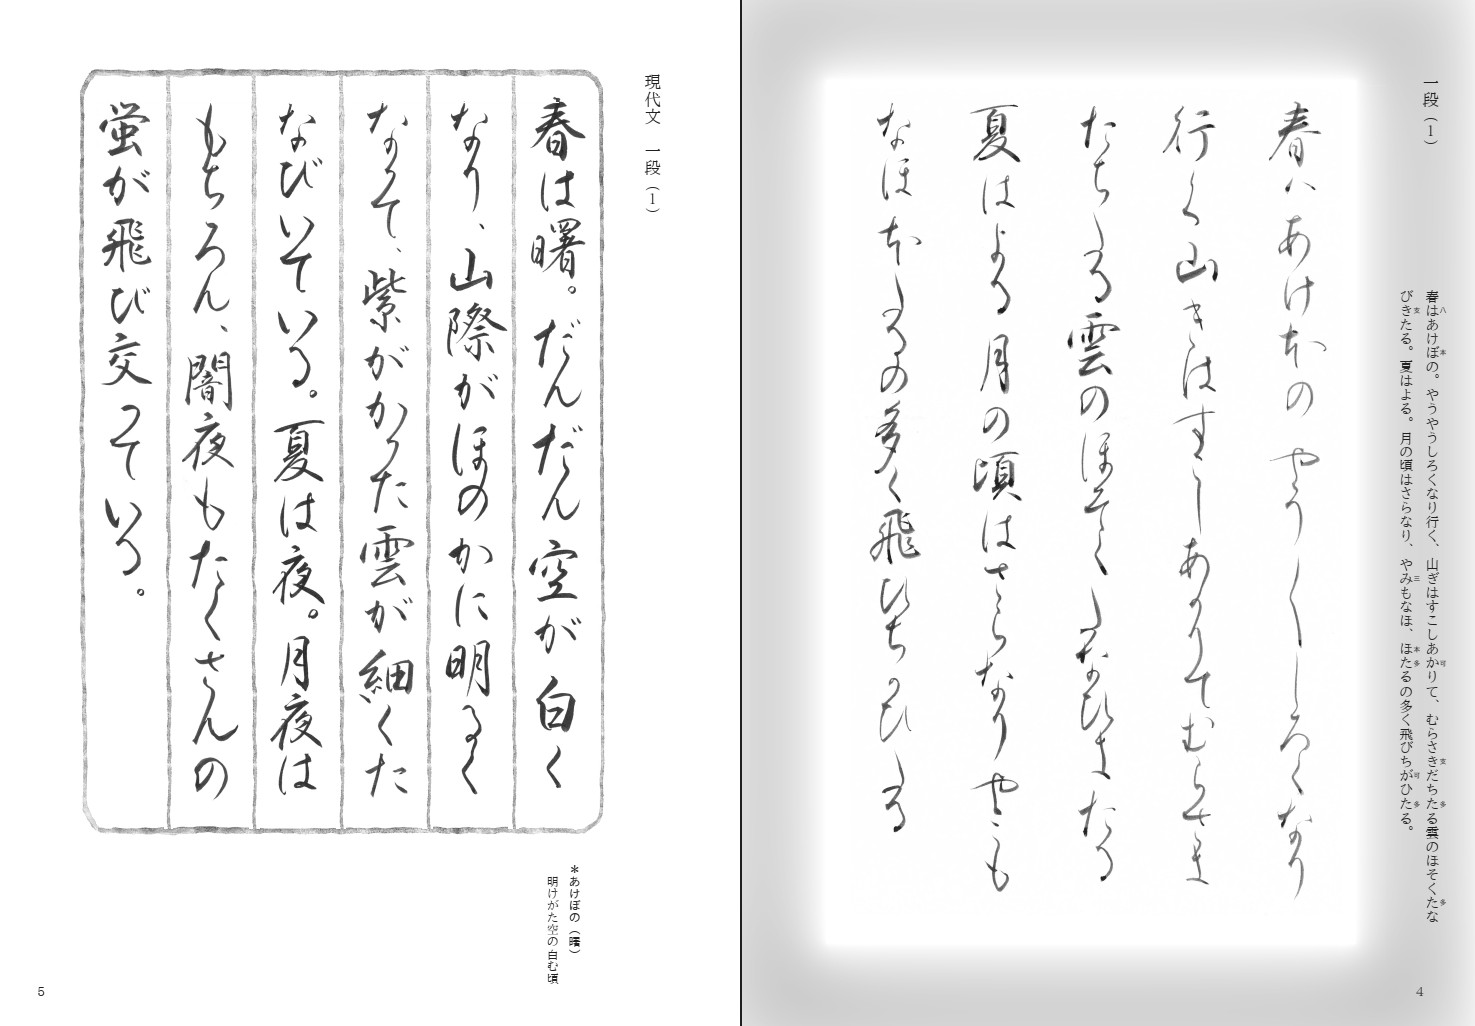 一段（1）
春はあけぼの。やうやうしろくなり行く、山ぎはすこしあかりて、むらさきだちたる雲のほそくたな
八 本 可 支 多 多
びきたる。夏はよる。月の頃はさらなり、やみもなほ、ほたるの多く飛びちがひたる。
支 三 本 多 可 多
春ハあけ本のやう〱しろくなり
行く山きはすこしあかりてむらさき
たちたる雲のほそくたなひきたる
夏はよる月の頃はさらなりやミも
なほ本たるの多く飛ひちかひたる
4
現代文　一段（1）
春は曙。だんだん空が白く
なり、山際がほのかに明るく
なって、紫がかった雲が細くた
なびいている。夏は夜。月夜は
もちろん、闇夜もたくさんの
蛍が飛び交っている。
＊あけぼの（曙）
明けがた空の白む頃
5